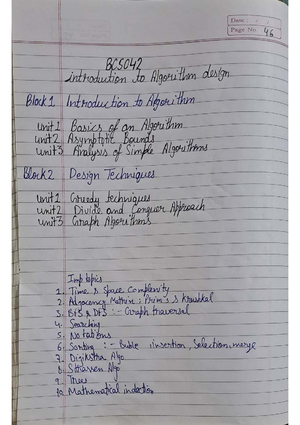 Date :
Page No. 46
BCS042
introdution to Algorithm design
Block 1 Introduction to Algorithm
unit 1 Basics of an Algorithm
unit 2 Asymptotic Bounds
unit 3 Analysis of Simple Algorithms
Block 2 Design Techniques
unit 1 Greedy techniques
unit 2 Divide and Conquer Approach
unit 3 Graph Algorithms
Imp topics
1. Time & Space Complexity
2. Adjacency Matrix ; Prim's & kruskal
3. BFS & DFS :- Graph traversal
4. Searching
5. Notations
6. Sorting :- Buble, insertion, Selection, merge
7. Dijikstra Algo
8. Strassen Algo
9. Trees
10. Mathematical induction